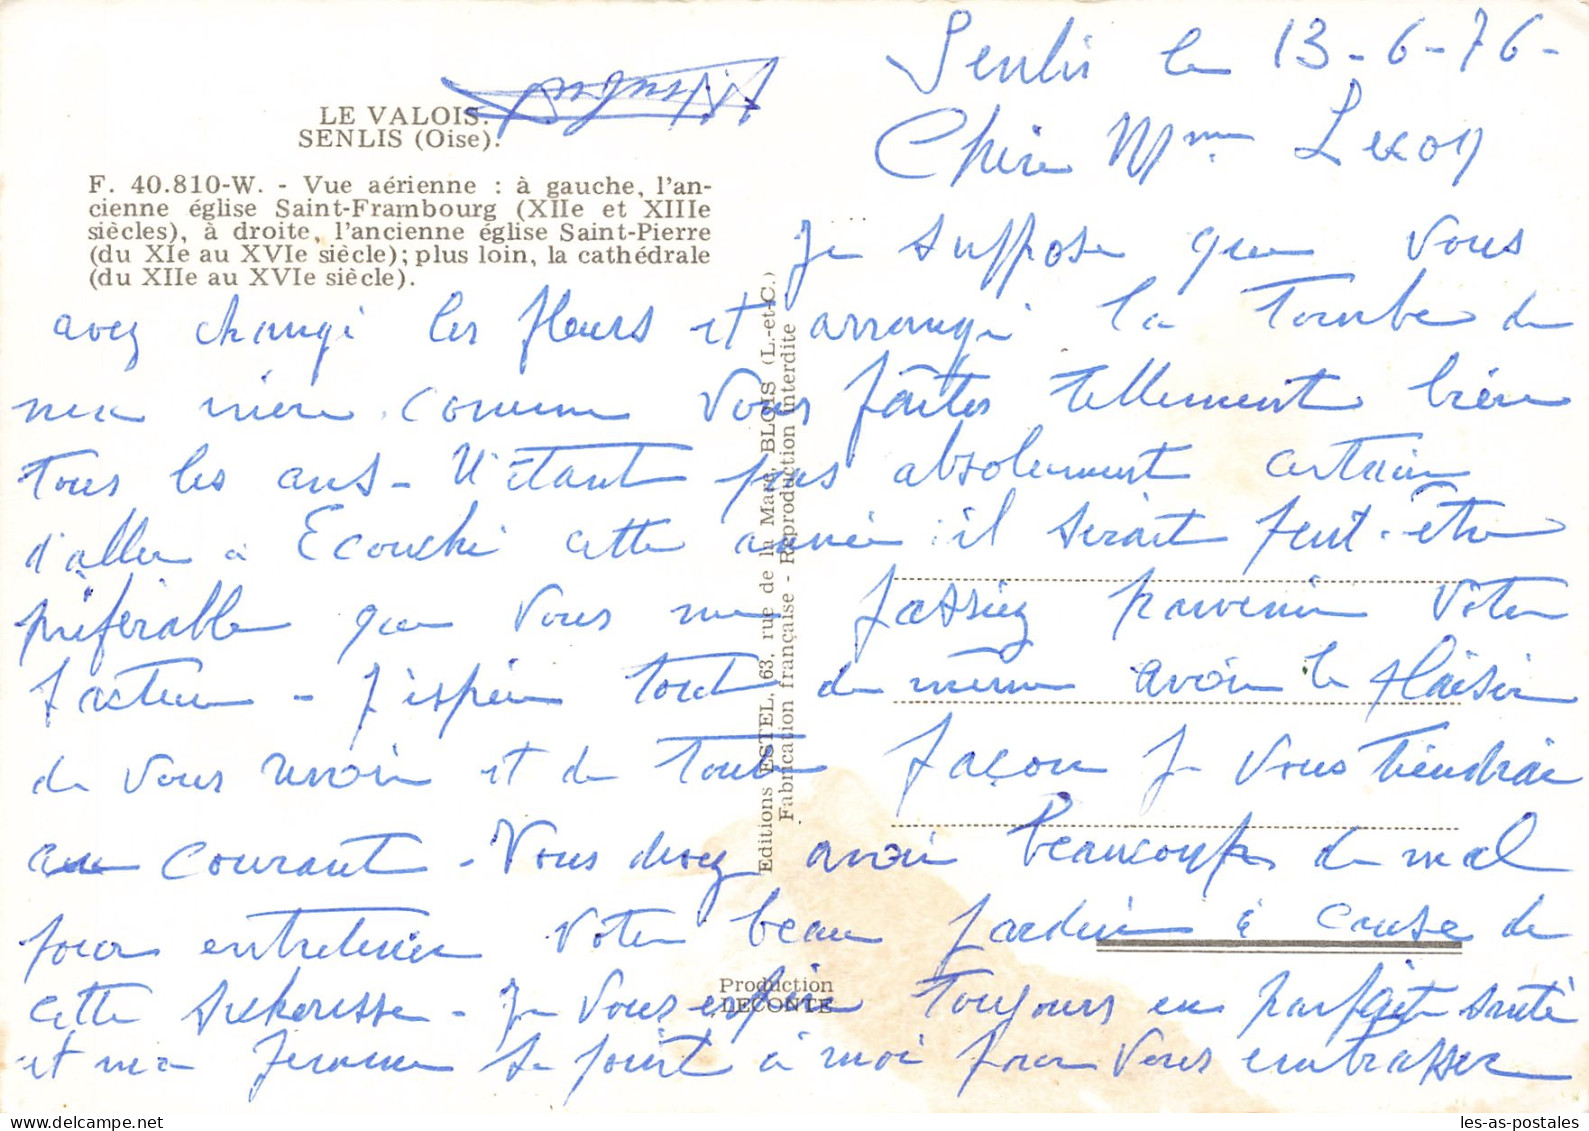 Senlis le 13-6-76-
LE VALOIS.
SENLIS (Oise).
F. 40.810-W. - Vue aérienne : à gauche, l'an-
cienne église Saint-Frambourg (XIIe et XIIIe
siècles), à droite, l'ancienne église Saint-Pierre
(du XIe au XVIe siècle); plus loin, la cathédrale
(du XIIe au XVIe siècle).
Chère Mme
Je suppose que vous
avez changé les fleurs et arrangé la Tombe de
ma mère comme vous faites tellement bien
tous les ans - N'étant pas absolument certain
d'aller à Ecouché cette année il serait peut-être
préférable que vous me fassiez parvenir votre
facture - J'espère tout de même avoir le plaisir
de vous revoir et de toute façon je vous tiendrai
au courant - Vous devez avoir beaucoup de mal
pour entretenir votre beau jardin à cause de
cette sécheresse - Je vous espère toujours en parfaite santé
et ma femme se joint à moi pour vous embrasser
Editions ESTEL, 63, rue de la Mare, BLOIS (L.-et-C.)
Fabrication française - Reproduction interdite
Production
LECONTE
les-as-postales